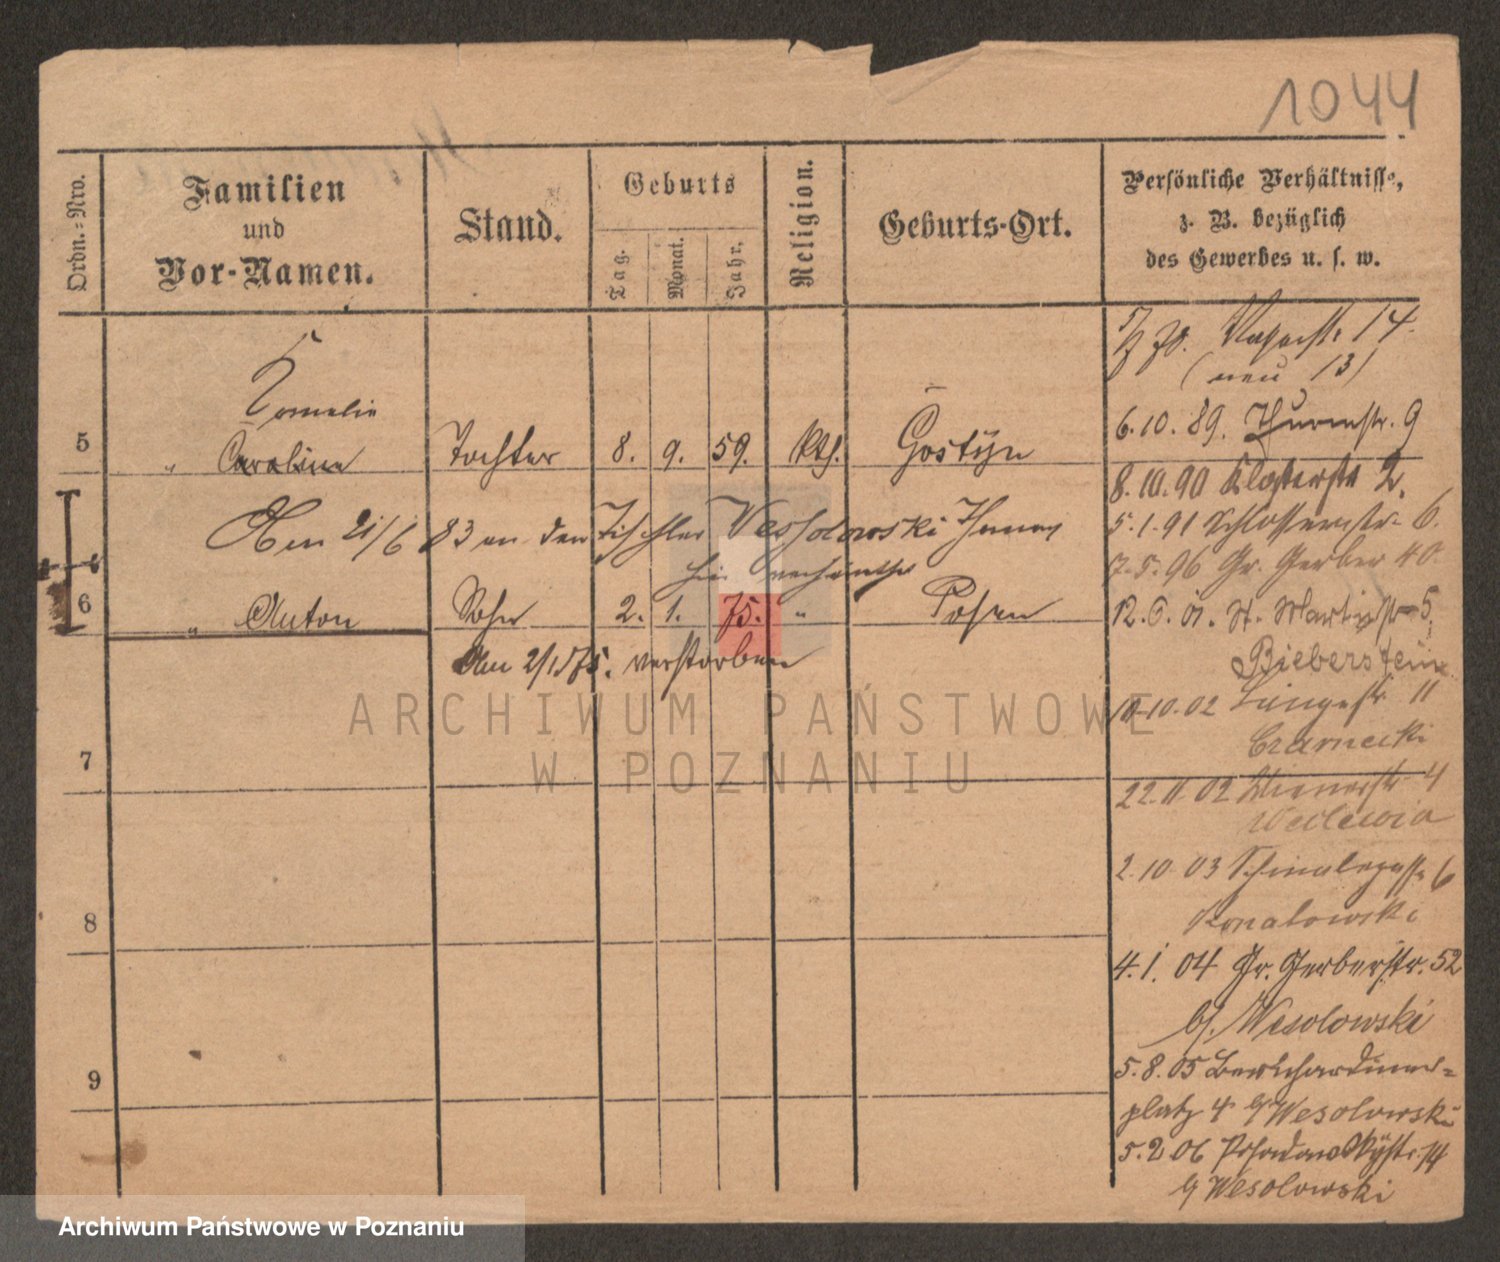 1044
Ordn.-Nro.
Familien
und
Vor-Namen.
Stand.
Geburts
Tag.
Monat.
Jahr.
Religion.
Geburts-Ort.
Persönliche Verhältnisse,
z. B. bezüglich
des Gewerbes u. s. w.
14.
(neu 13)
6.10.89. Thurmstr. 9
Kornelie
5 " Caroline Tochter 8. 9. 59. kth. Gostÿn
8.10.90 Klosterstr 2.
5.1.91 Schlosserstr. 6.
21/6 83 an den Tischler Wesholowski Thomas
hier verheirathet
7.5.96 Gr. Gerber 40
6 " Anton Sohn 2. 1. 75. " Posen
12.6.01. St. Martinstr 5,
Bieberstein
Am 2/1 75. verstorben
10.10.02 Langestr 11
Czarnecki
7
22.11.02 Wienerstr 4
2.10.03 Schmalegasse 6
8
4.1.04 Gr. Gerberstr. 52
b/. Wesolowski
9
5.8.05 Bernhardiner-
platz 4 b/ Wesolowski
5.2.06 Posadowskÿstr. 14
b/ Wesolowski
ARCHIWUM PAŃSTWOWE
W POZNANIU
Archiwum Państwowe w Poznaniu